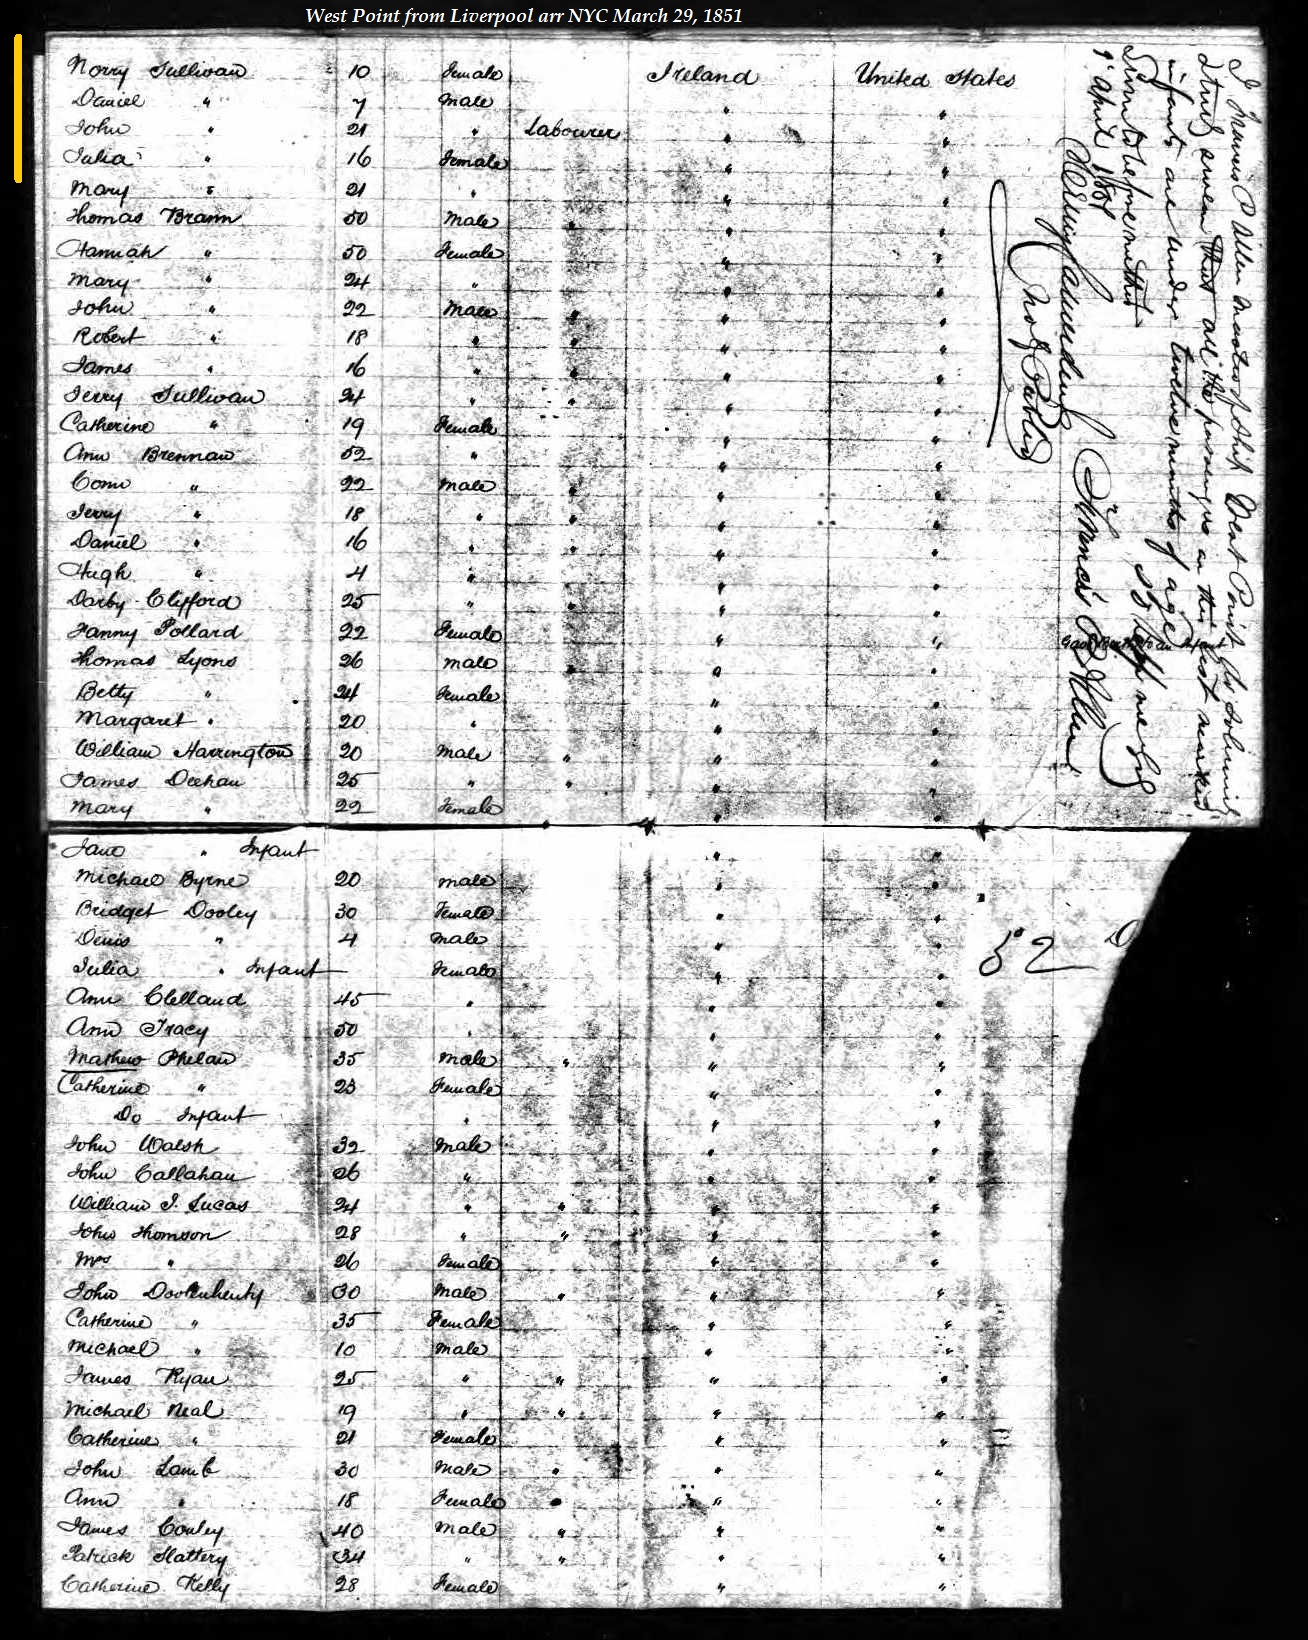 West Point from Liverpool arr NYC March 29, 1851
Norry Sullivan 10 Female Ireland United States
Daniel " 7 Male " "
John " 21 " Labourer " "
Julia " 16 Female " "
Mary " 21 " " "
Thomas Brann 50 Male " " "
Hannah " 50 Female " "
Mary " 24 " " "
John " 22 Male " " "
Robert " 18 " " " "
James " 16 " " " "
Jerry Sullivan 24 " " " "
Catherine " 19 Female " "
Ann Brennan 52 " " "
Conn " 22 Male " " "
Jerry " 18 " " " "
Daniel " 16 " " " "
Hugh " 4 " " "
Darby Clifford 25 " " " "
Fanny Pollard 22 Female " " Gave Birth to an Infant
Thomas Lyons 26 Male " " "
Betty " 24 Female " "
Margaret " 20 " " "
William Harrington 20 Male " " "
James Deehan 25 " " " "
Mary " 22 Female " "
Jane " Infant " "
Michael Byrne 20 Male " "
Bridget Dooley 30 Female " "
Denis " 4 Male " "
Julia " Infant Female " "
Ann Clelland 45 " " "
Ann Tracy 50 " " "
Mathew Phelan 35 Male " " "
Catherine " 23 Female " "
Do Infant " " "
John Walsh 32 Male " "
John Callahan 26 " " "
William J. Lucas 24 " " " "
John Thomson 28 " " " "
Mrs " 26 Female " "
John 30 Male " " "
Catherine " 35 Female " "
Michael " 10 Male " "
James Ryan 25 " " " "
Michael Neal 19 " " " "
Catherine " 21 Female " "
John Lamb 30 Male " " "
Ann " 18 Female " " "
James Conley 40 Male " " "
Patrick Slattery 34 " " " "
Catherine Kelly 28 Female " "
I Francis P Allen Master of Ship West Point do solemnly
swear that all the passengers on this list marked
infants are under twelve months of age
So help me God
Sworn to before me this
1st April 1851
Francis P Allen
Not Public
52